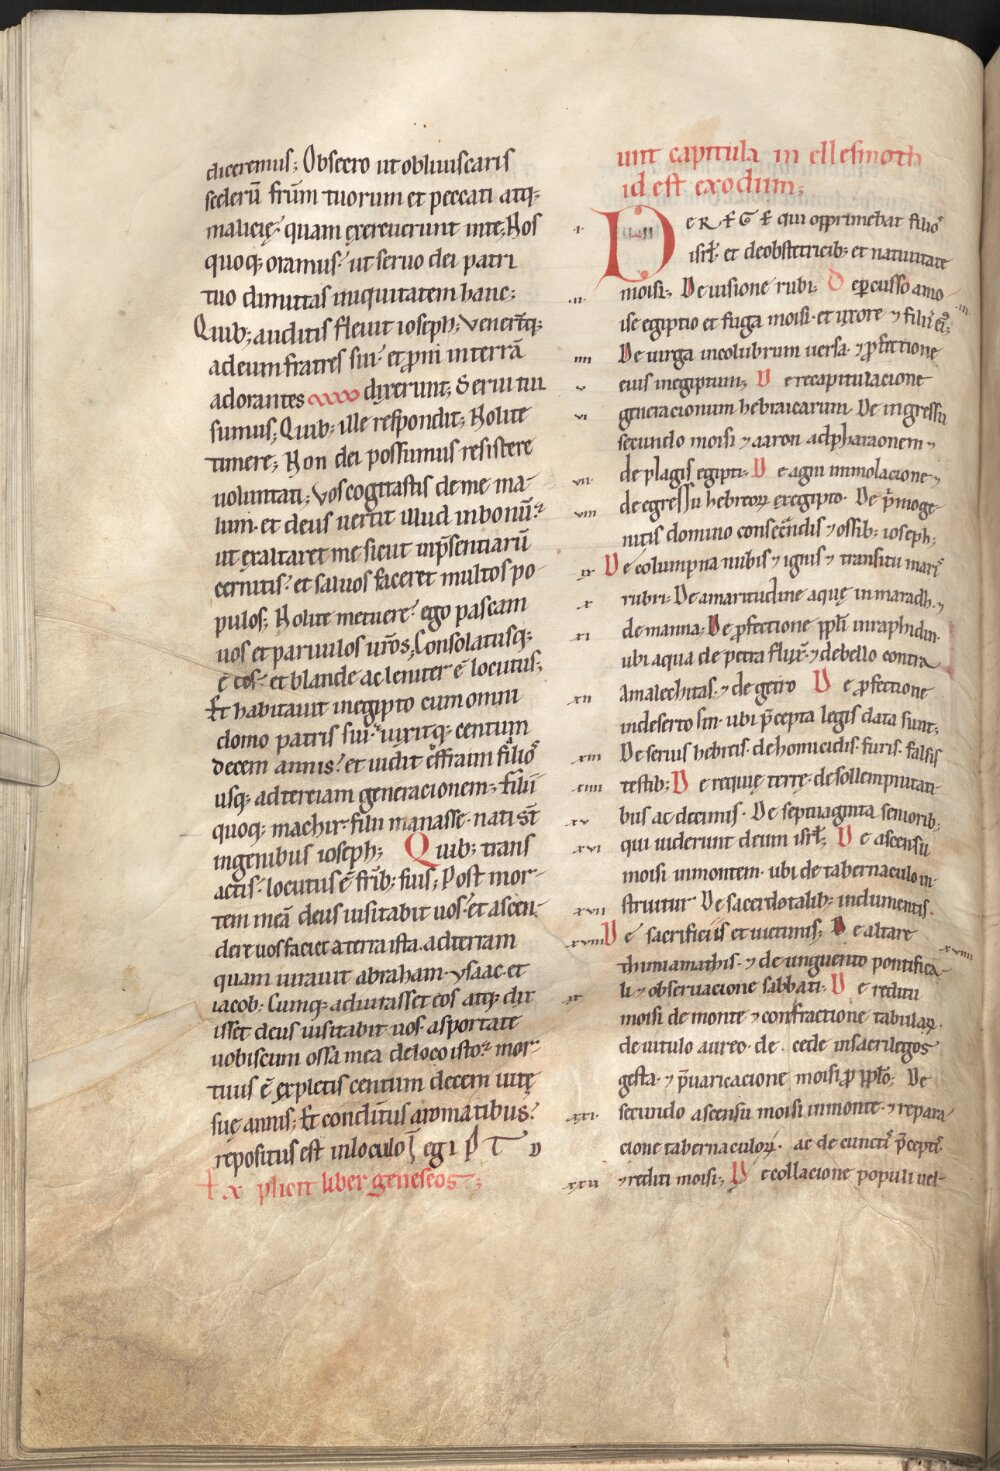 diceremus; Obsecro ut obliuiscaris
scelerū frūm tuorum et peccati atq;
malicię quam exercuerunt inte; Nos
quoq; oramus ut seruo dei patri
tuo dimittas iniquitatem hanc;
Quib; auditis fleuit ioseph; Venerūtq;
adeum fratres sui et proni interrā
adorantes dixerunt; Serui tui
sumus; Quib; ille respondit; Nolite
timere; Non dei possumus resistere
uoluntati; Vos cogitastis de me ma-
lum et deus uertit illud inbonū
ut exaltaret me sicut inp̄sentiarū
cernitis et saluos faceret multos po-
pulos; Nolite metuere ego pascam
uos et paruulos ur̄os; Consolatusq;
ē eos et blande ac leniter ē locutus;
Et habitauit inegipto cum omni
domo patris sui uixitq; centum
decem annis et uidit effraim filios
usq; ad terciam generacionem; Filii
quoq; machir filii manasse nati st̄
ingenibus ioseph; Quib; trans
actis locutus ē fr̄ib; suis; Post mor-
tem meā deus uisitabit uos et ascen-
dere uos faciet a terra ista adterram
quam iurauit abraham ysaac et
iacob. Cumq; adiurasset eos atq; dix
isset deus uisitabit uos asportate
uobiscum ossa mea de loco isto mor-
tuus ē expletis centum decem uitę
suę annis; Et conditus aromatibus
repositus est inloculo egipt
Explicit liber geneseos;
unt capitula in ellesmoth
id est exodum;
.i. DE REGE qui opprimebat filios
isrl̄ et deobstetricib; et natiuitate
.ii. moisi; De uisione rubi; De percusso amo .iii.
ise egiptio et fuga moisi et uxore ⁊ filiis ei;
iiii De uirga incolubrum uersa ⁊ profectione
v eius inegiptum; De recapitulacione
vi generacionum hebraicarum. De ingressu
secundo moisi ⁊ aaron adpharaonem ⁊
vii de plagis egipti; De agni immolacione ⁊
viii de egressu hebreorum exegipto. De p̄moge-
nitis domino consecrandis ⁊ ossib; ioseph;
ix De columpna nubis ⁊ ignis ⁊ transitu maris
x rubri. De amaritudine aquę inmarath ⁊
xi de manna; De profectione ppl̄i inraphidin
ubi aqua de petra fluxit ⁊ debello contra
xii Amalechitas ⁊ de getro De profectione
indeserto sin ubi p̄cepta legis data sunt;
xiii De seruis hebreis. de homicidis. furis. falsis
xiiii testib; De requię terrę. de sollempnitati-
xv bus ac decimis. De septuaginta seniorib;
xvi qui uiderunt deum isrl̄; De ascensu
moisi inmontem ubi de tabernaculo in-
xvii struitur De sacerdotalib; indumentis.
xviii De sacrificiis et uictimis; De altare xviiii
thimiamathis ⁊ de unguento pontifica-
xx li ⁊ obseruacione sabbati; De reditu
moisi de monte ⁊ confractione tabularum
de uitulo aureo de cede insacrilegos
gesta ⁊ p̄uaricacione moisi pro pplo; De
xxi secundo ascensu moisi inmonte ⁊ repara
cione tabernaculorum ac de cunctis p̄ceptis
xxii ⁊ reditu moisi; De collacione populi uel-